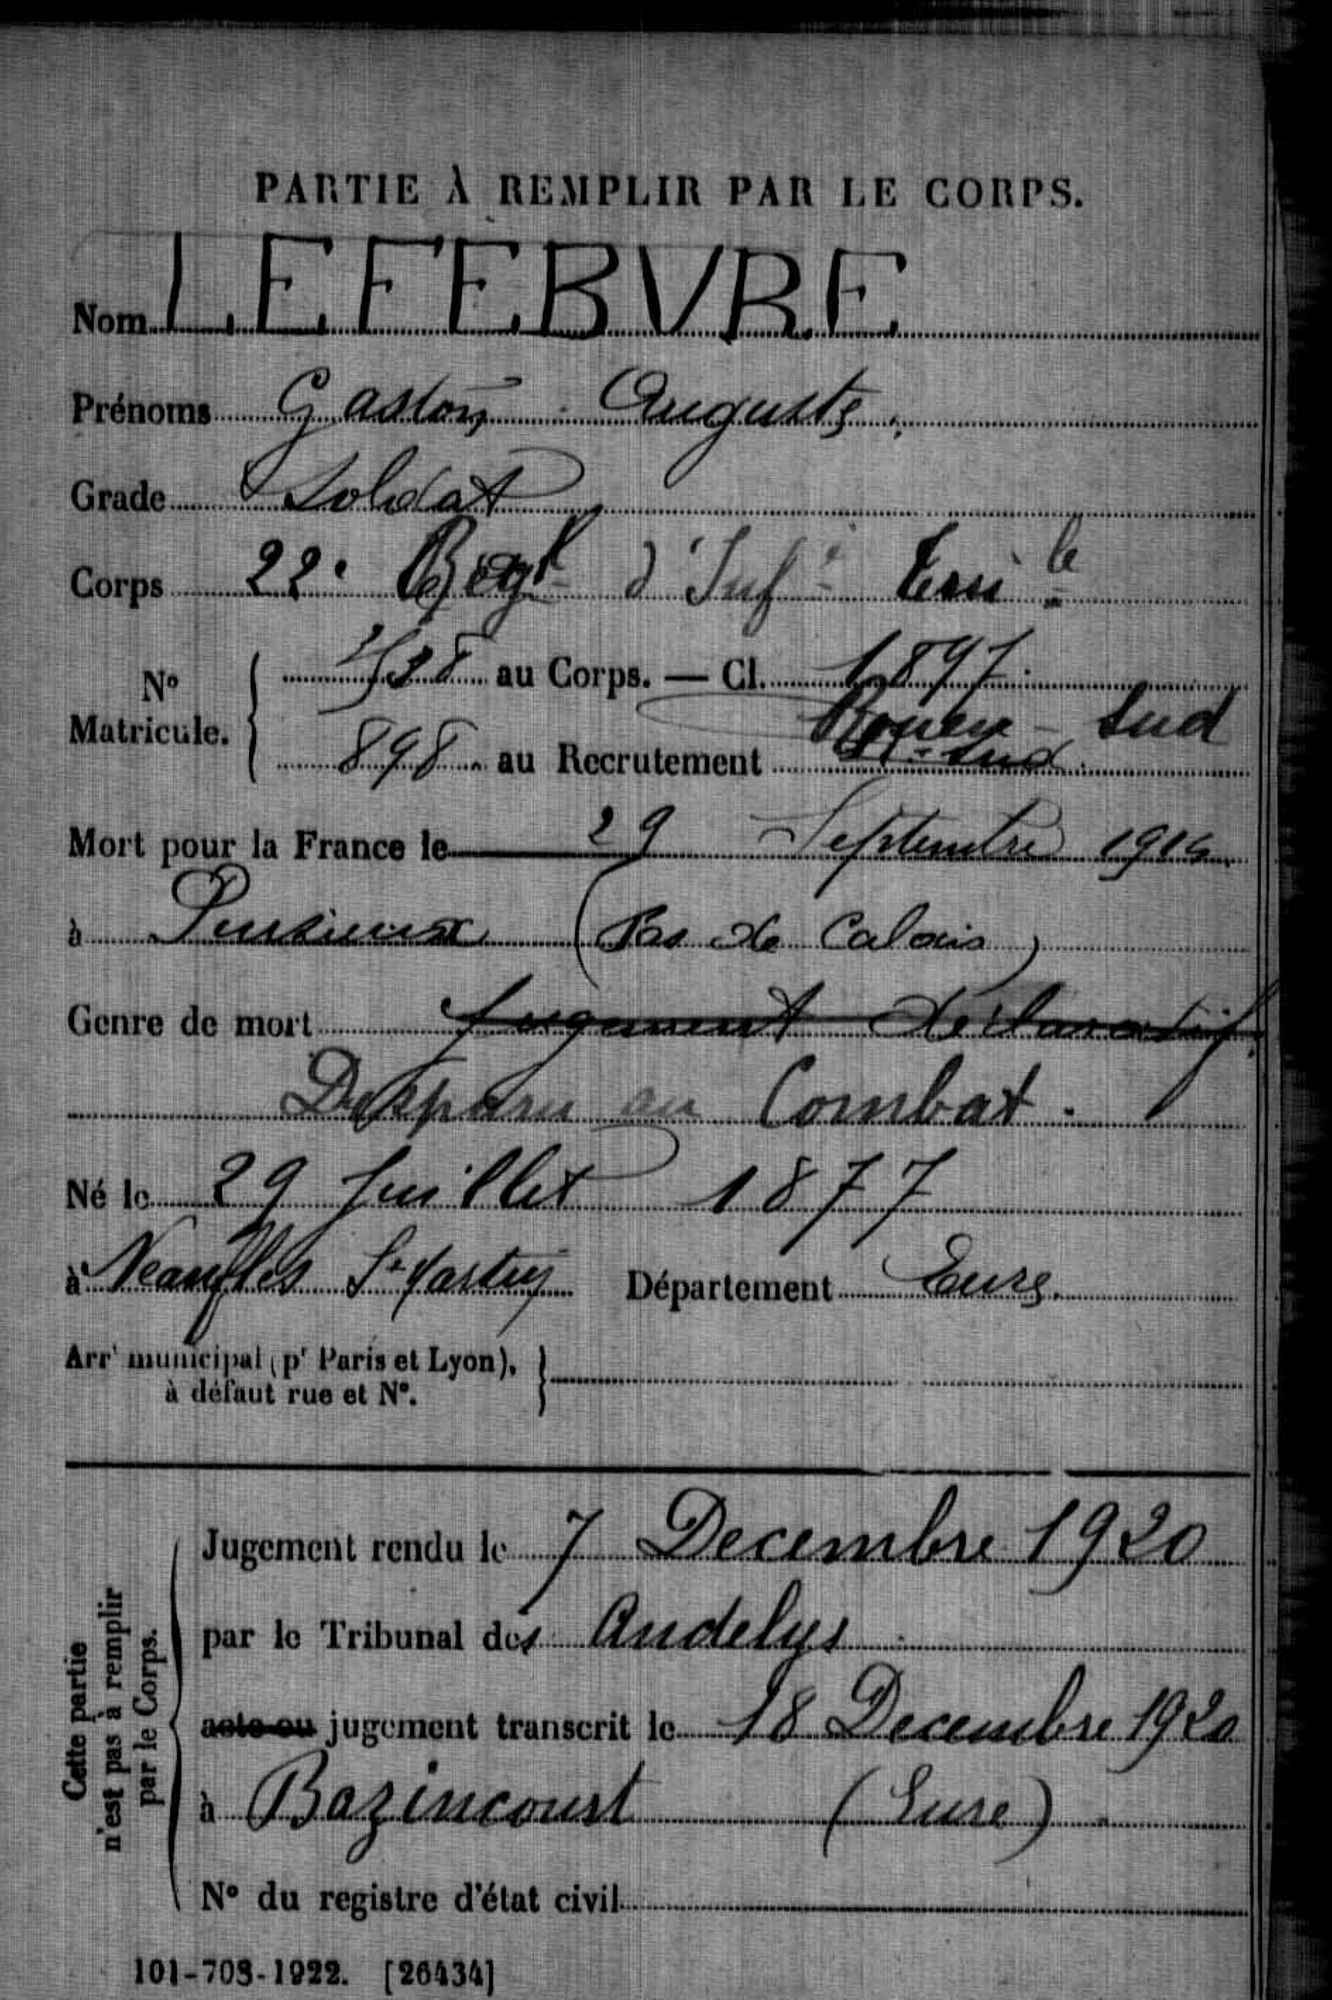 PARTIE À REMPLIR PAR LE CORPS.
Nom LEFEBVRE
Prénoms Gaston Auguste.
Grade Soldat
Corps 22e Regt d'Infie Terrile
N° Matricule. au Corps. — Cl. 1897
Rouen - Sud
898 au Recrutement
Mort pour la France le 29 Septembre 1914
à Puisieux (Pas de Calais)
Genre de mort Jugement déclaratif.
Disparu au Combat.
Né le 29 Juillet 1877
à Neaufles St Martin Département Eure
Arrt municipal (pr Paris et Lyon), à défaut rue et N°.
Cette partie n'est pas à remplir par le Corps.
Jugement rendu le 7 Decembre 1920
par le Tribunal des Andelys
acte ou jugement transcrit le 18 Decembre 1920
à Bazincourt (Eure)
N° du registre d'état civil
101-708-1922. [26434]